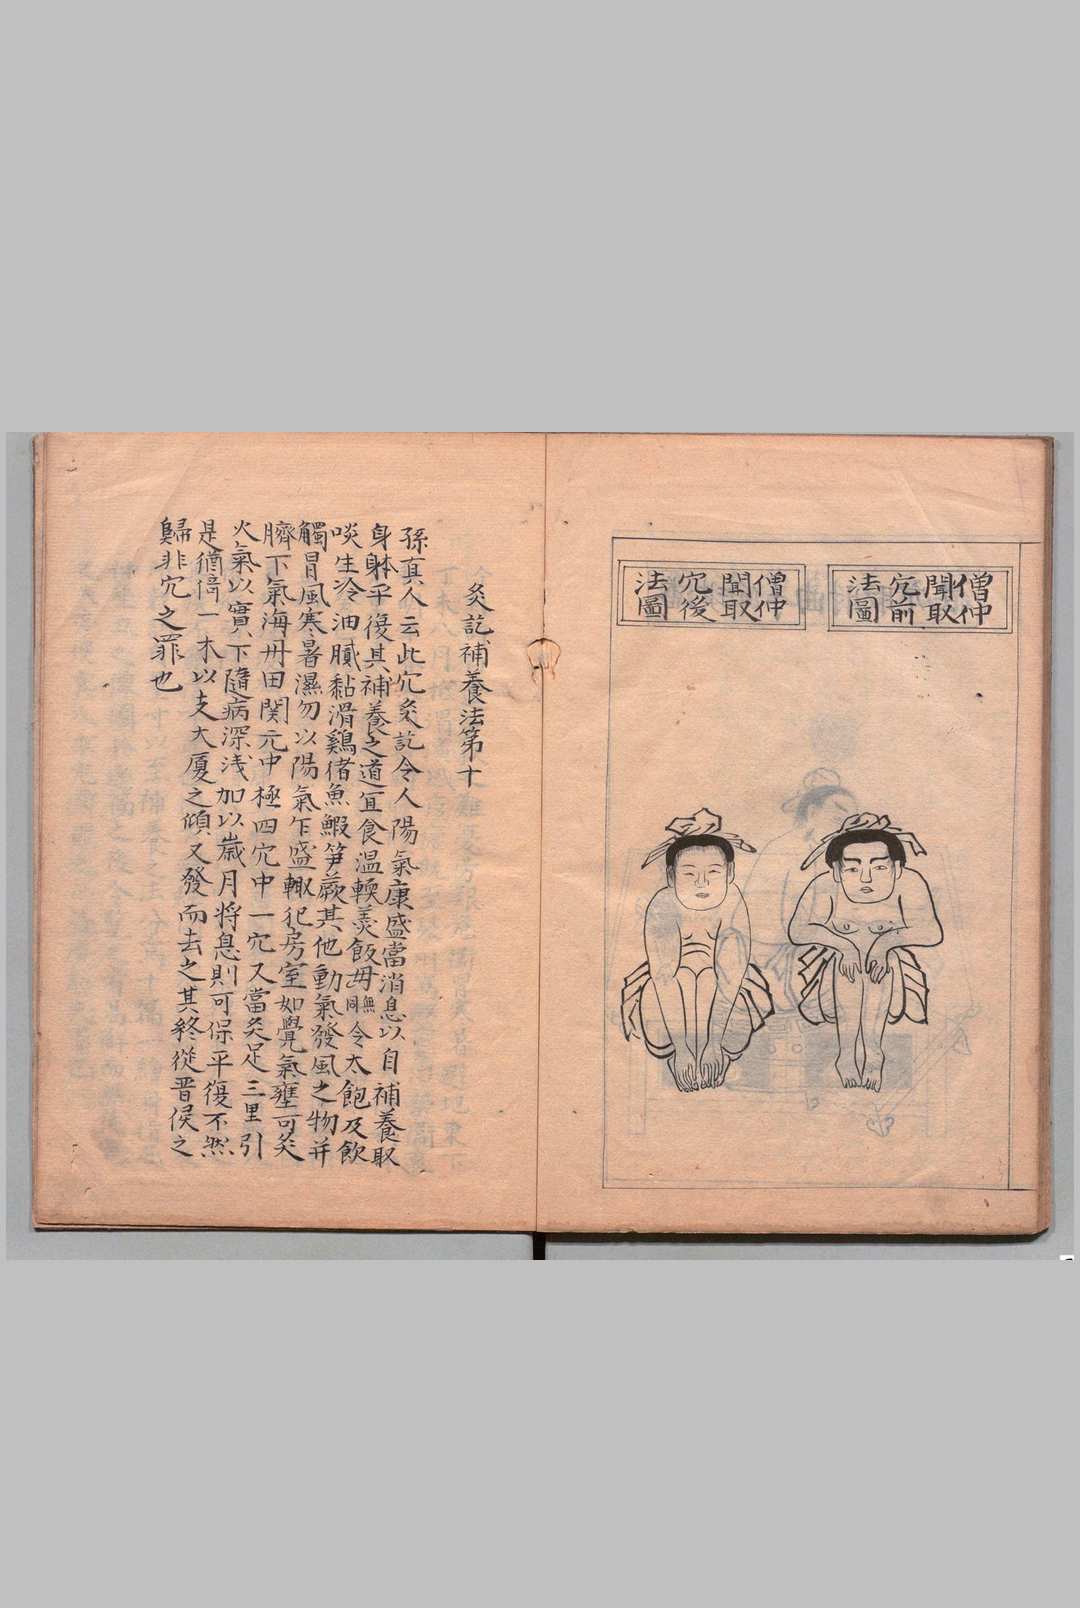 僧仲
聞取
穴前
法圖
僧仲
聞取
穴後
法圖
灸訖補養法第十
孫真人云此穴灸訖令人陽氣康盛當消息以自補養取
身躰平復其補養之道宜食温輭羮飯毋無同令太飽及飲
啖生冷油膩黏滑鷄猪魚鰕笋蕨其他動氣發風之物并
觸冒風寒暑濕勿以陽氣乍盛輙犯房室如覺氣壅可灸
臍下氣海丹田関元中極四穴中一穴又當灸足三里引
火氣以實下隨病深浅加以歳月将息則可保平復不然
是猶倚一木以支大厦之傾又發而去之其終従晋侯之
歸非穴之罪也